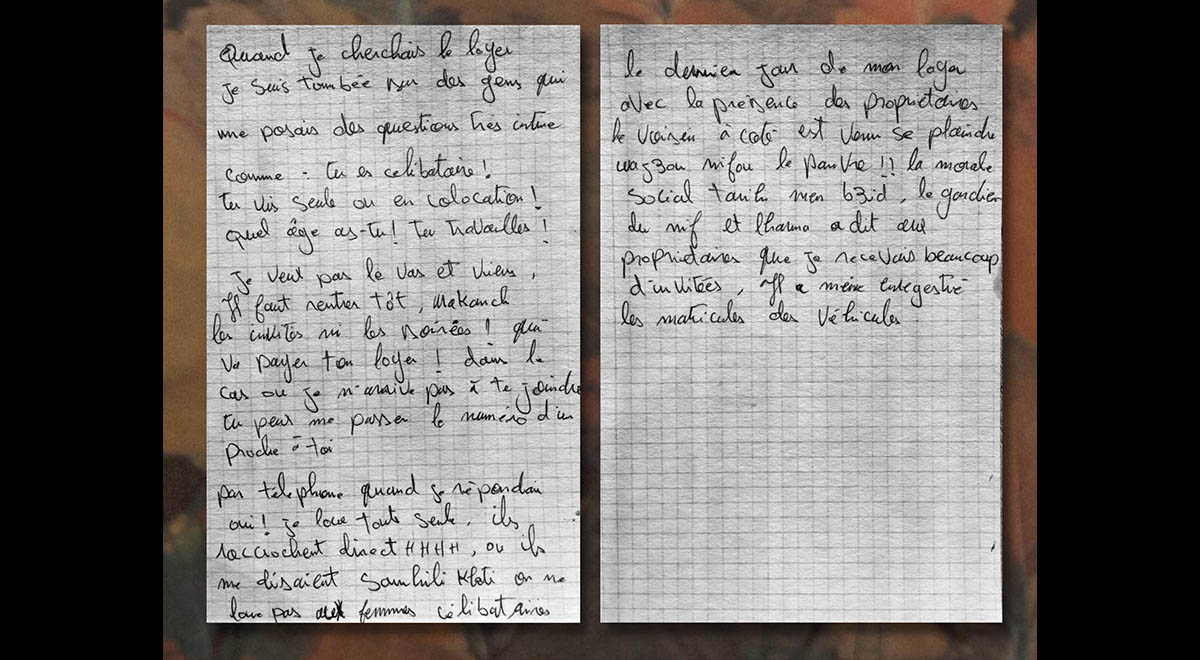 Quand je cherchais le loyer
je suis tombée sur des gens qui
me posais des questions très intime
comme : tu es celibataire !
tu vis seule ou en colocation !
quel âge as-tu ! tu travailles !
je veut pas le vas et viens,
Il faut rentrer tôt, makanch
les invités ni les soirées ! qui
va payer ton loyer ! dans le
cas ou je n'arrive pas à te joindre
tu peux me passer le numéro d'un
proche à toi
par téléphone quand je répondai
oui ! je loue toute seule, ils
raccrochent direct HHHH, ou ils
me disaient Samhili Khti on ne
loue pas aux femmes célibataires
le dernier jour de mon loyer
avec la présence des propriétaires
le voisin à coté est venu se plaindre
wag3ou nifou le pauvre !! la morale
social tarih men b3id, le gardien
du nif et lharma a dit aux
propriétaires que je recevais beaucoup
d'invitées, Il a même enregestré
les matricules des véhicules